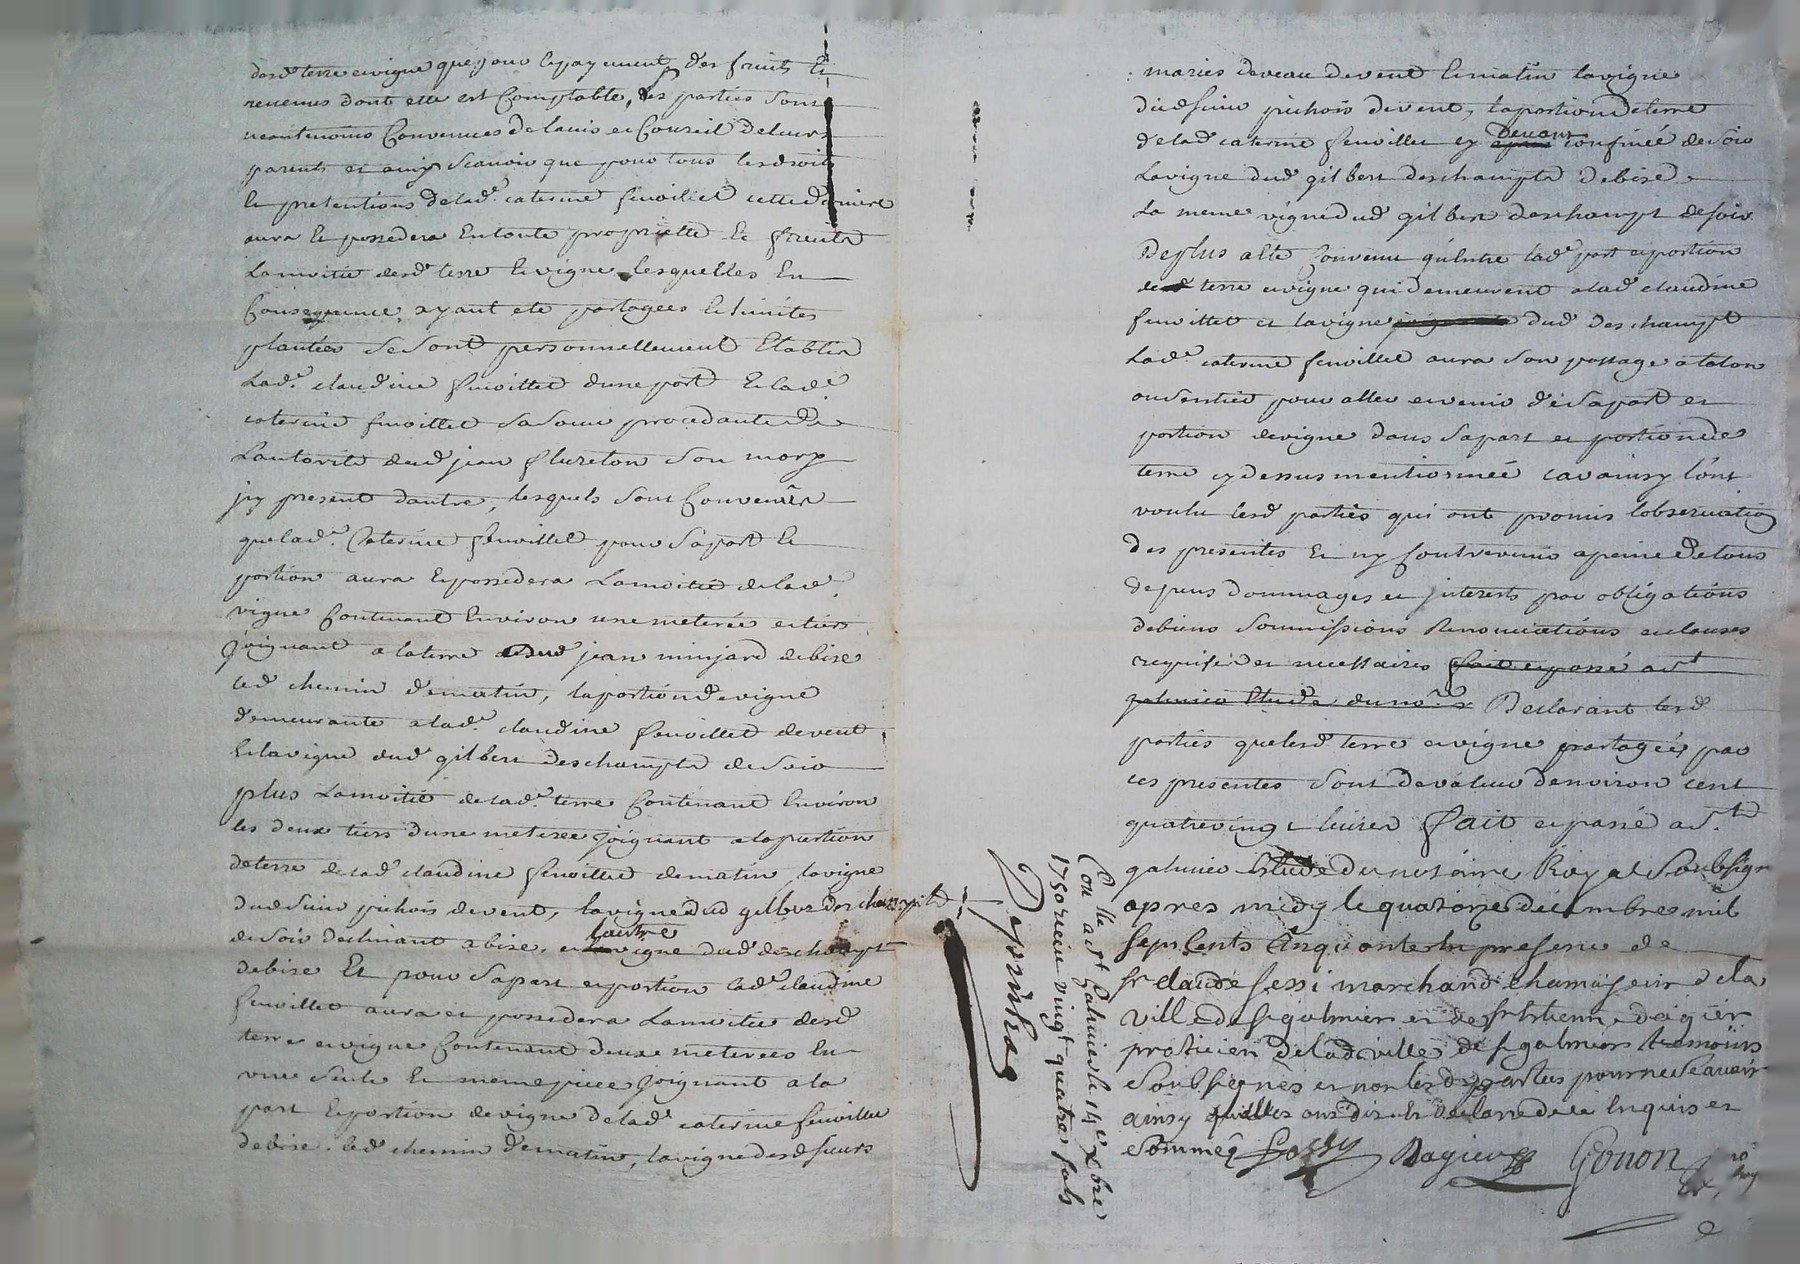 desd. terre et vigne que pour le payement des fruits et
revenus dont elle est Comptable, les parties sont
neantmoins Convenues de lavis et Conseil de leurs
parents et amis Scavoir que pour tous les droits
et pretentions de lad.e caterine fenoillet cette derniere
aura et possedera En toute proprietté et fruits
La moitié desd. terre et vigne lesquelles En
Consequence, ayant eté partagées et limites
plantées se sont personnellement Etablis
Lad.e claudine fenoillet dune part Et lad.e
caterine fenoillet sa soeur procedante de
Lautorité dud. jean fleureton son mary
jcy present dautre, lesquels sont Convenus
que lad.e Caterine fenoillet pour sa part et
portion aura et possedera La moitié de lad.e
vigne Contenant Environ une meterée et tiers
joignant a la terre dud. jean minjard de bise
led. chemin de matin, la portion de vigne
demeurante a lad.e claudine fenoillet de vent
Et la vigne dud. gilbert deschampts de soir
plus La moitié de lad.e terre Contenant Environ
les deux tiers dune meterée joignant a la portion
de terre de lad. claudine fenoillet de matin, la vigne
du de vent, la vigne dud gilbert deschampts
de soir declinant a bise, et lautre vigne dud. deschampt
de bise Et pour sa part et portion lad.e claudine
fenoillet aura et possedera La moitié desd.
terre et vigne Contenant deux meterées En
une seule et meme piece joignant a la
part et portion de vigne de lad.e caterine fenoillet
de bise, led. chemin de matin, la vigne desd. sieurs
mariés de vent et matin la vigne
du de vent, la portion de terre
de lad.e caterine fenoillet cy devant confinée de soir
La vigne dud. gilbert deschampts de bise
La meme vigne dud. gilbert deschampt de soir
De plus a été Convenu qu'Entre lad.e part et portion
de terre et vigne qui demeurent a lad.e claudine
fenoillet et la vigne dud. deschampt
Lad.e caterine fenoillet aura son passage a talon
ou sentier pour aller et venir de sa part et
portion de vigne dans sa part et portion de
terre cy dessus mentionnée car ainsy l'ont
voulu lesd. parties qui ont promis lobservation
des presentes Et ny Contrevenir a peine de tous
depens dommages et jnterests par obligations
de biens soumissions Renonciations et clauses
requises et necessaires fait et passé a st
galmier Etude du no.re Declarant lesd.
parties que lesd. terre et vigne partagées par
ces presentes sont de valeur denviron cent
quatrevingt livres fait et passé a st
galmier Etude du notaire Royal Soubsigné
apres midy le quatorze décembre mil
sept cents Cinquante En presence de
sr claude marchand chamoiseur de la
ville de st galmier et de sr Etienne dagier
praticien de lad. ville de st galmier temoins
soubsignés et non lesd. parties pour ne scavoir
ainsy quelles ont dit et declaré de ce Enquis et
sommés Dagier Gonon
no.re
Roy
Con.llé a st Galmier le 14e Xbre
1750 reçu vingt quatre sols